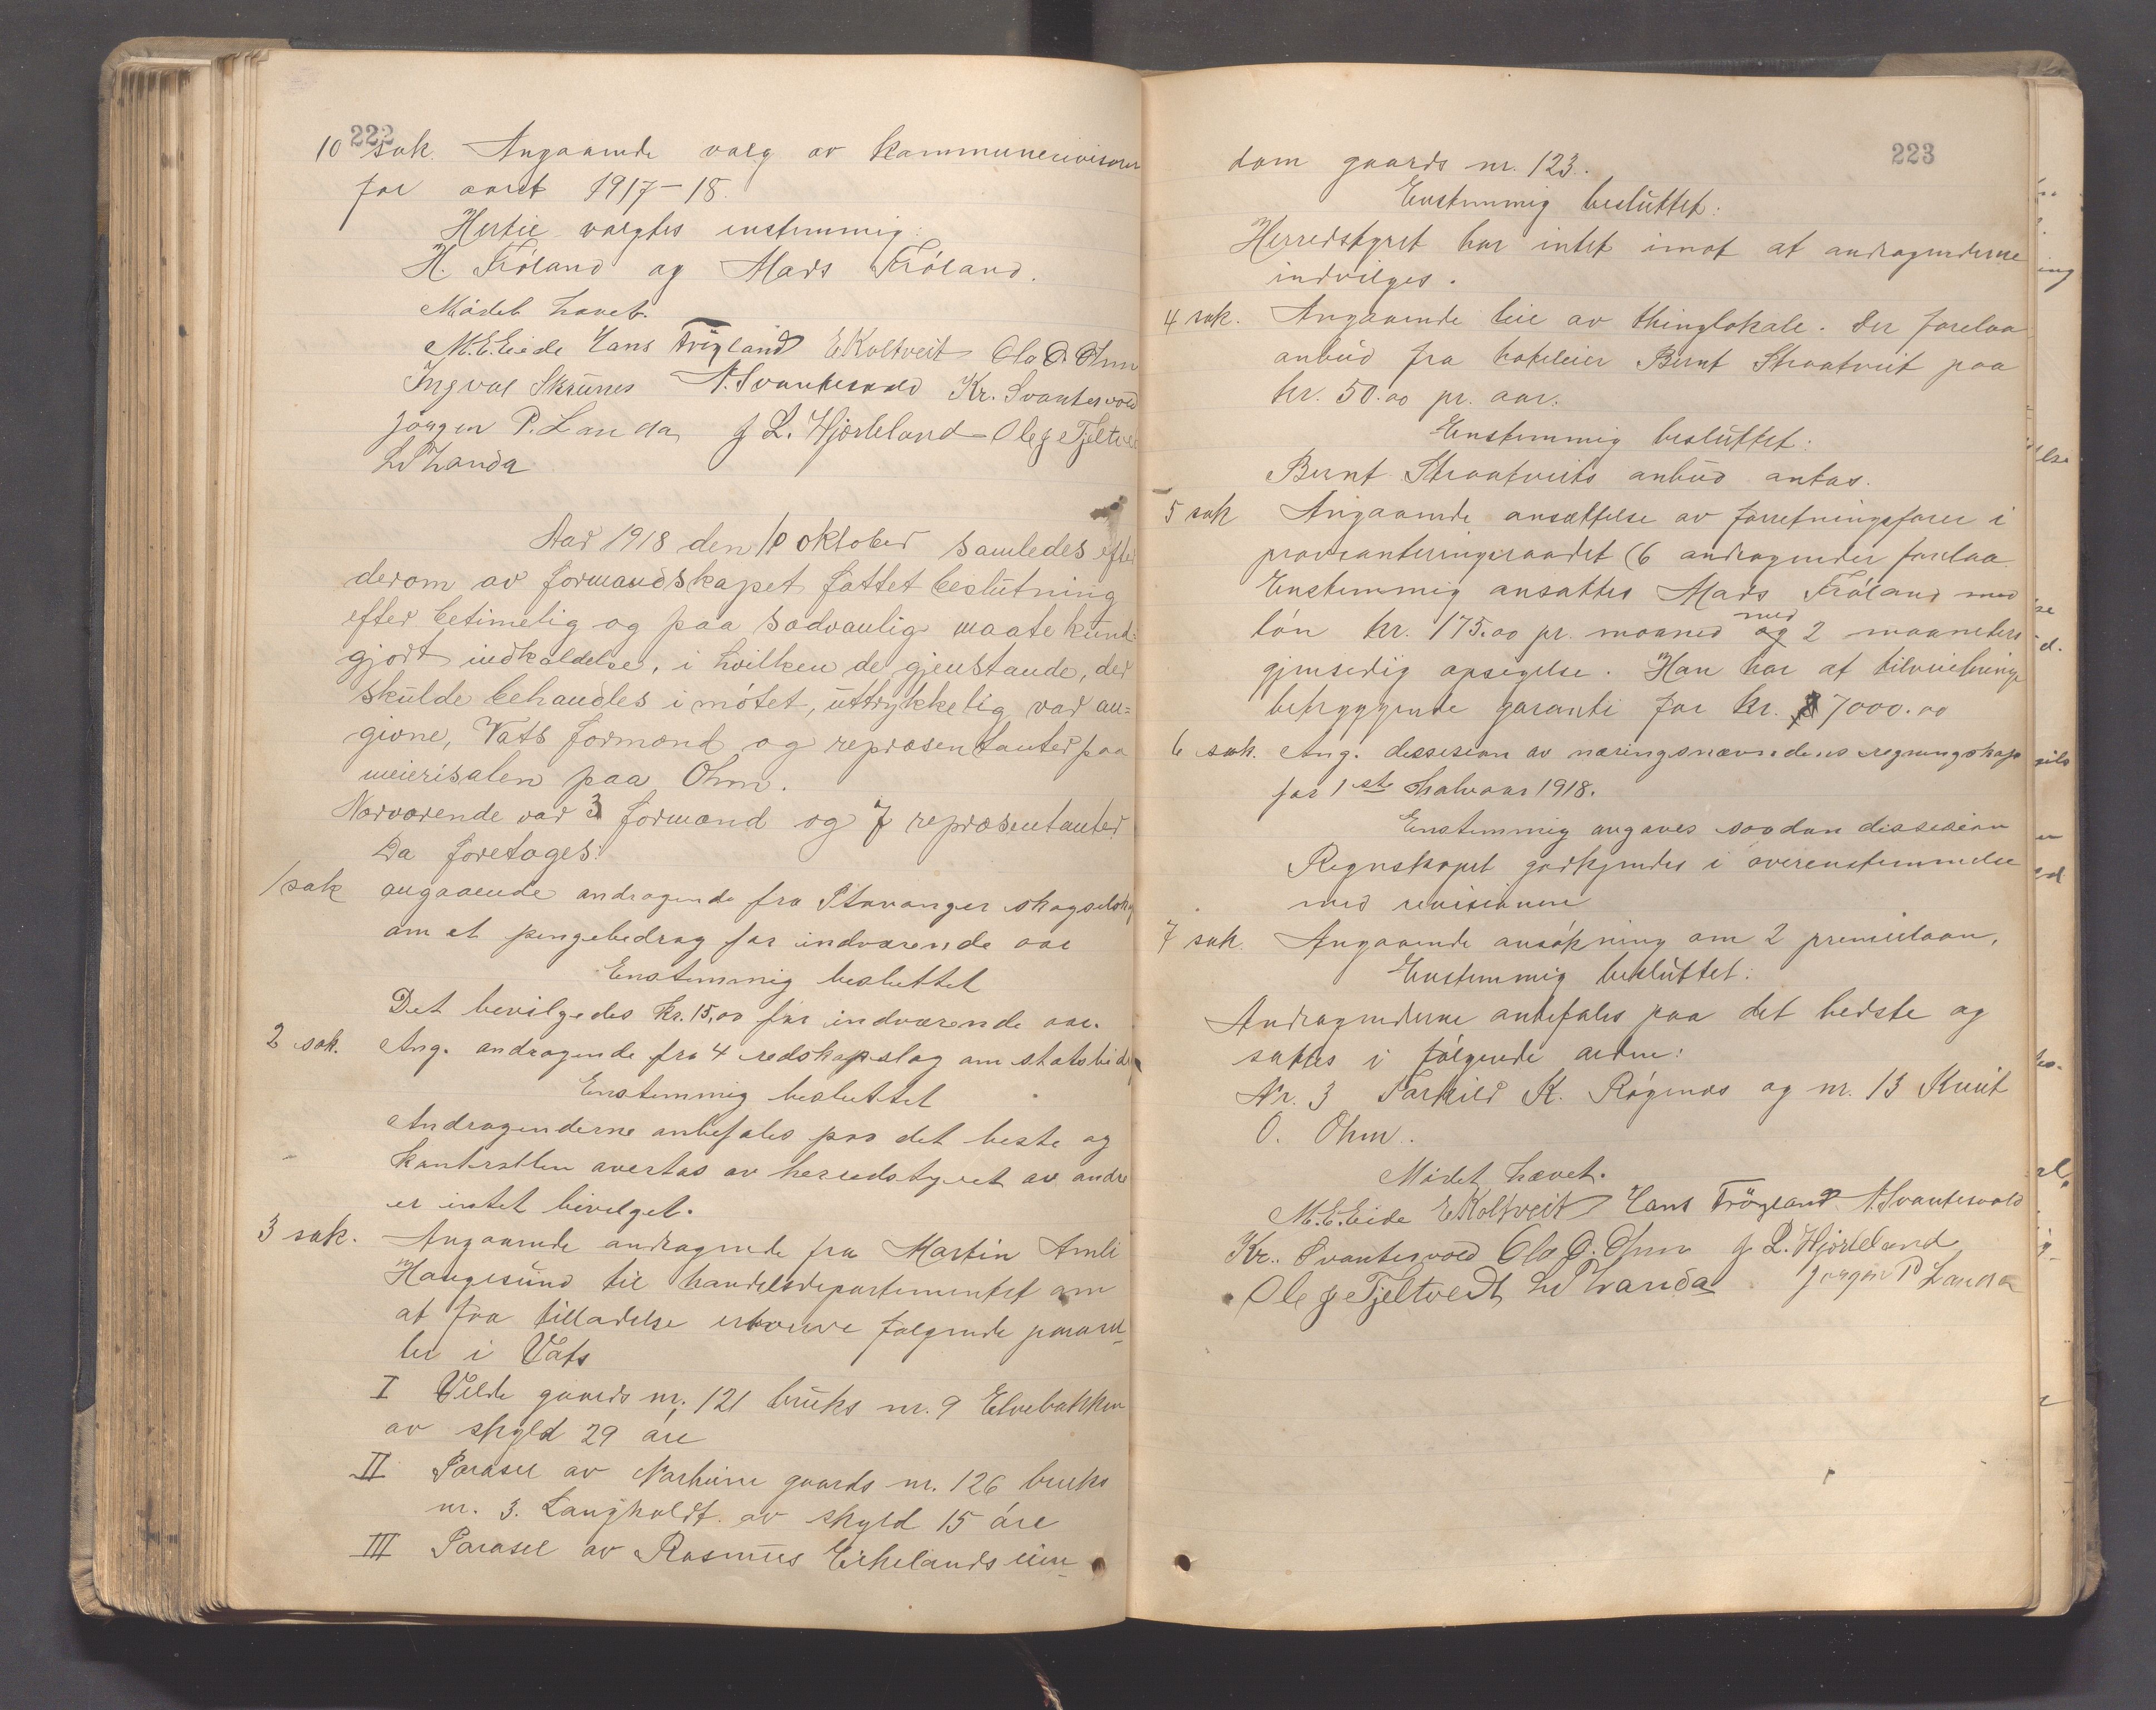 222
10 sak. Angaaende valg av kommunerevisorer
for aaret 1917-18.
Hertil valgtes enstemmig:
H. Fröland og Mads Fröland.
Mödet hævet.
M.E. Eide Hans Tröyland E Koltveit Ola O. Ohm
Ingval Skeiines N. Svantesvold Kr. Svantesvold
Jörgen P. Landa J L. Hjorteland Ole J Fjeltvedt
L P Landa
Aar 1918 den 10 oktober samledes efter
derom av formandskapet fattet beslutning
efter betimelig og paa sædvanlig maate kund=
gjort indkaldelse, i hvilken de gjenstande, der
skulde behandles i mötet, uttrykkelig var an=
givne, Vats formænd og repræsentanter paa
meierisalen paa Ohm.
Nærværende var 3 formænd og 7 repræsentanter
Da foretoges:
1 sak angaaende andragende fra Stavanger skogselskap
om et pengebedrag for indværende aar
Enstemmig besluttet
Det bevilgedes kr. 15,00 for indværende aar.
2 sak. Ang. andragende fra 4 redskapslag om statsbid
Enstemmig besluttet
Andragenderne anbefales paa det beste og
kontrollen overtas av herredstyret av andre
er intet bevilget.
3 sak. Angaaende andragende fra Martin Amli
Haugesund til handelsdepartementet om
at faa tilladelse erverve følgende parsel-
ler i Vats
I Velde gaards nr. 121 bruks nr. 9 Elvebakken
av skyld 29 öre
II Parsel av Norheim gaards nr. 126 bruks
nr. 3. Langholdt av skyld 15 öre
III Parsel av Rasmus Eikelands eien-
223
dom gaards nr. 123.
Enstemmig besluttet:
Herredstyret har intet imot at andragenderne
indvilges.
4 sak. Angaaende leie av thinglokale. Der forelaa
anbud fra hoteleier Bernt Straatveit paa
kr. 50.00 pr. aar.
Enstemmig besluttet:
Bernt Straatveits anbud antas.
5 sak Angaaende ansættelse av forretningsfører i
provianteringsraadet (6 andragender forelaa
Enstemmig ansattes Mads Fröland med
lön kr. 175.00 pr. maaned og med 2 maaneders
gjensedig opsigelse. Han har at tilveiebringe
betryggende garanti for kr. 7000.00
6 sak. Ang. dessision av næringsnævndens regnungskap
for 1ste halvaar 1918.
Enstemmig avgaves saadan dissision
Regnskapet godkjendes i överenstemmelse
med revisionen
7 sak. Angaaende ansökning om 2 premielaan.
Enstemmig besluttet:
Andragenderne anbefales paa det bedste og
sættes i fölgende orden:
Nr. 3 Torkild K. Rögenæs og nr. 13 Knut
O. Ohm.
Mödet hævet.
M.E. Eide E Koltveit Hans Tröyland N. Svantesvold
Kr. Svantesvold Ola O. Ohm J L. Hjorteland
Ole J Fjeltvedt L P Landa Jörgen P Landa